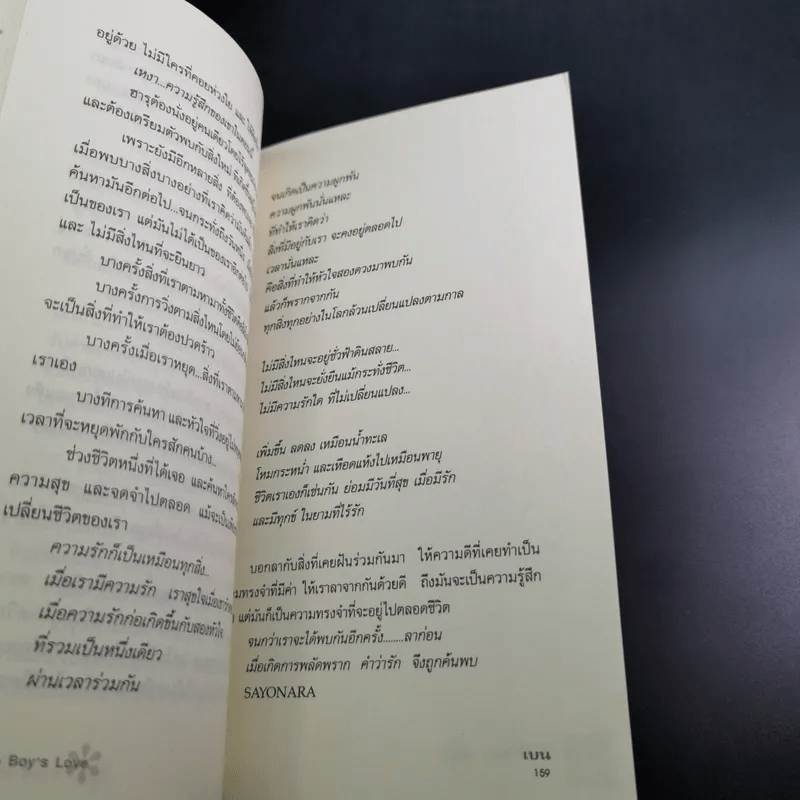 อยู่ด้วย ไม่มีใครที่คอยห่วงใย และ
เหงา...ความรู้สึกของเขาในตอนนี้
ฮารุต้องนั่งอยู่คนเดียวโดยไร้
และต้องเตรียมตัวพบกับสิ่งใหม่
เพราะยังมีอีกหลายสิ่ง ที่ต้อง
เมื่อพบบางสิ่งบางอย่างที่เราคิดว่ามัน
ค้นหามันอีกต่อไป...จนกระทั่งถึงวันหนึ่ง
เป็นของเรา แต่มันไม่ได้เป็นของเราอีก
และ ไม่มีสิ่งไหนที่จะยืนยาว
บางครั้งสิ่งที่เราตามหามาทั้งชีวิต
บางครั้งการวิ่งตามสิ่งไหนโดยไม่
จะเป็นสิ่งที่ทำให้เราต้องปวดร้าว
บางครั้งเมื่อเราหยุด...สิ่งที่เราตามหา
เราเอง
บางทีการค้นหา และหัวใจที่วิ่งอยู่
เวลาที่จะหยุดพักกับใครสักคนบ้าง..
ช่วงชีวิตหนึ่งที่ได้เจอ และค้นหาใคร
ความสุข และจดจำไปตลอด แม้จะเป็น
เปลี่ยนชีวิตของเรา
ความรักก็เป็นเหมือนทุกสิ่ง...
เมื่อเรามีความรัก เราสุขใจเมื่อเรา
เมื่อความรักก่อเกิดขึ้นกับสองหัวใจ
ที่รวมเป็นหนึ่งเดียว
ผ่านเวลาร่วมกัน
Boy's Love
จนเกิดเป็นความผูกพัน
ความผูกพันนั่นแหละ
ที่ทำให้เราคิดว่า
สิ่งที่มีอยู่กับเรา จะคงอยู่ตลอดไป
เวลานั่นแหละ
คือสิ่งที่ทำให้หัวใจสองดวงมาพบกัน
แล้วก็พรากจากกัน
ทุกสิ่งทุกอย่างในโลกล้วนเปลี่ยนแปลงตามกาล
ไม่มีสิ่งไหนจะอยู่ชั่วฟ้าดินสลาย...
ไม่มีสิ่งไหนจะยั่งยืนแม้กระทั่งชีวิต...
ไม่มีความรักใด ที่ไม่เปลี่ยนแปลง...
เพิ่มขึ้น ลดลง เหมือนน้ำทะเล
โหมกระหน่ำ และเหือดแห้งไปเหมือนพายุ
ชีวิตเราเองก็เช่นกัน ย่อมมีวันที่สุข เมื่อมีรัก
และมีทุกข์ ในยามที่ไร้รัก
บอกลากับสิ่งที่เคยฝันร่วมกันมา ให้ความดีที่เคยทำเป็น
มทรงจำที่มีค่า ให้เราลาจากกันด้วยดี ถึงมันจะเป็นความรู้สึก
แต่มันก็เป็นความทรงจำที่จะอยู่ไปตลอดชีวิต
จนกว่าเราจะได้พบกันอีกครั้ง........ลาก่อน
เมื่อเกิดการพลัดพราก คำว่ารัก จึงถูกค้นพบ
SAYONARA
เบน
159